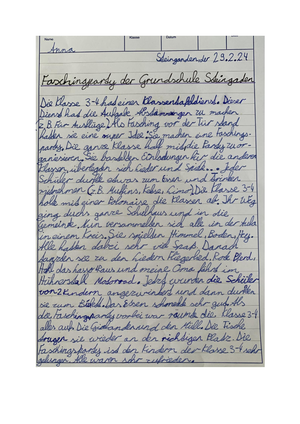 Name
Klasse
Datum
Anna
Steingaden der 29.2.24
Faschingsparty der Grundschule Steingaden
Die Klasse 3-4 hat einen Klassen Dieser
Dienst hat die Aufgabe zu machen
z.B. für Ausflüge. Als Fasching vor der Tür stand
hatten sie eine super Idee: Sie machen eine Faschings-
party. Die ganze Klasse half mit die Party zu or-
ganisieren. Sie bastelten Einladungen für die anderen
Klassen, überlegten sich Lieder und Spiele... Jeder
Schüler durfte etwas zum Essen und Trinken
mitnehmen (z.B. Muffins, Kekse, Limo). Die Klasse 3-4
holte mit einer Polonaise die Klassen ab. Ihr Weg
ging durch ganze Schulhaus und in die
Gemeinde. Nun versammelten sich alle in der Aula
in einem Kreis. Sie spielten Himmel, Boden,
Alle hatten dabei sehr viel Spaß. Danach
tanzten sie zu den Liedern Fliegerlied, Rock
das rote Haus und meine Oma fährt im
Hühnerstall Motorrad. Jetzt wurden die Schüler
von 2 Kindern angezündet und dann durften
sie zum Das Essen schmeckte sehr gut. Als
die Faschingsparty vorbei war räumte die Klasse 3-4
alles auf: Die Girlanden und den Müll. Die Tische
trugen sie wieder an den richtigen Platz. Die
Faschingsparty ist den Kindern der Klasse 3-4 sehr
gelungen. Alle waren sehr zufrieden.